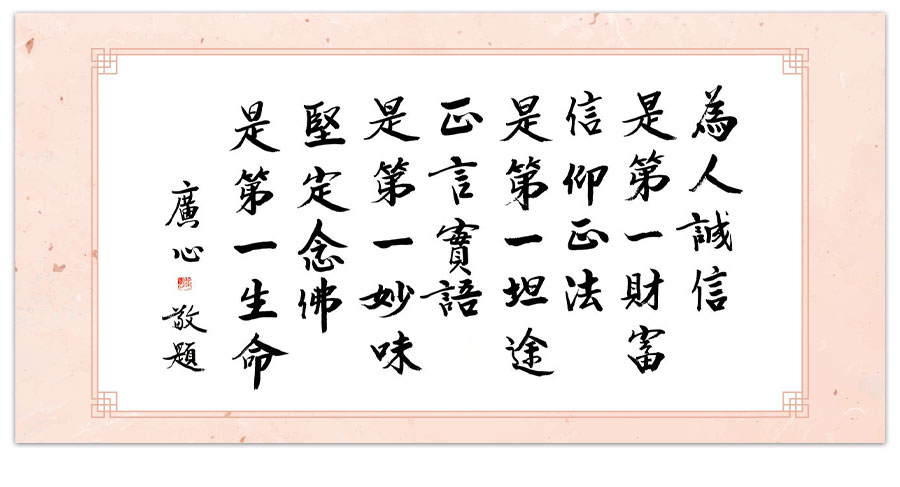 為人誠信
是第一財富
信仰正法
是第一坦途
正言實語
是第一妙味
堅定念佛
是第一生命
廣心
敬題